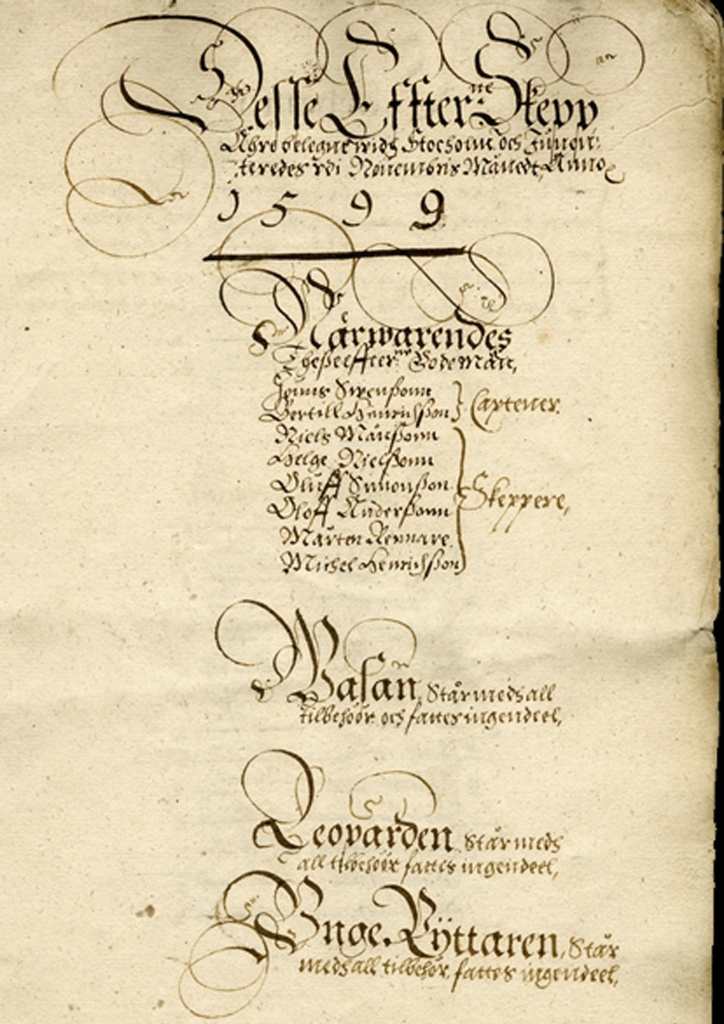 Desse Effterne Skepp
Ähre belegne widh Stocholm och Inuen:
teredes vdi Nouembris Månedt, Anno
1 5 9 9
Närwarendes
Theßeffterne Gode Män,
Jönns Swenßonn
Bertill Henrichßon } Captener.
Niels Månßonn
Helge Nielßonn
Oluff Simonßon } Skeppere,
Oloff Anderßonn
Mårten Rennare
Michel Henrichßon
Wasan, Står medh all
tilbehöör och fattes ingendeel,
Leoparden Står medh
all tilbehöör fattes ingendeel,
Unge Ryttaren, Står
medh all tilbehör, fattes ingendeel,